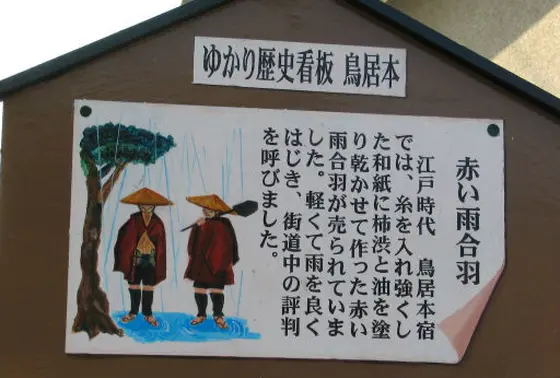 ゆかり歴史看板 鳥居本
赤い雨合羽
江戸時代 鳥居本宿
では、糸を入れ強くし
た和紙に柿渋と油を塗
り乾かせて作った赤い
雨合羽が売られていま
した。軽くて雨を良く
はじき、街道中の評判
を呼びました。